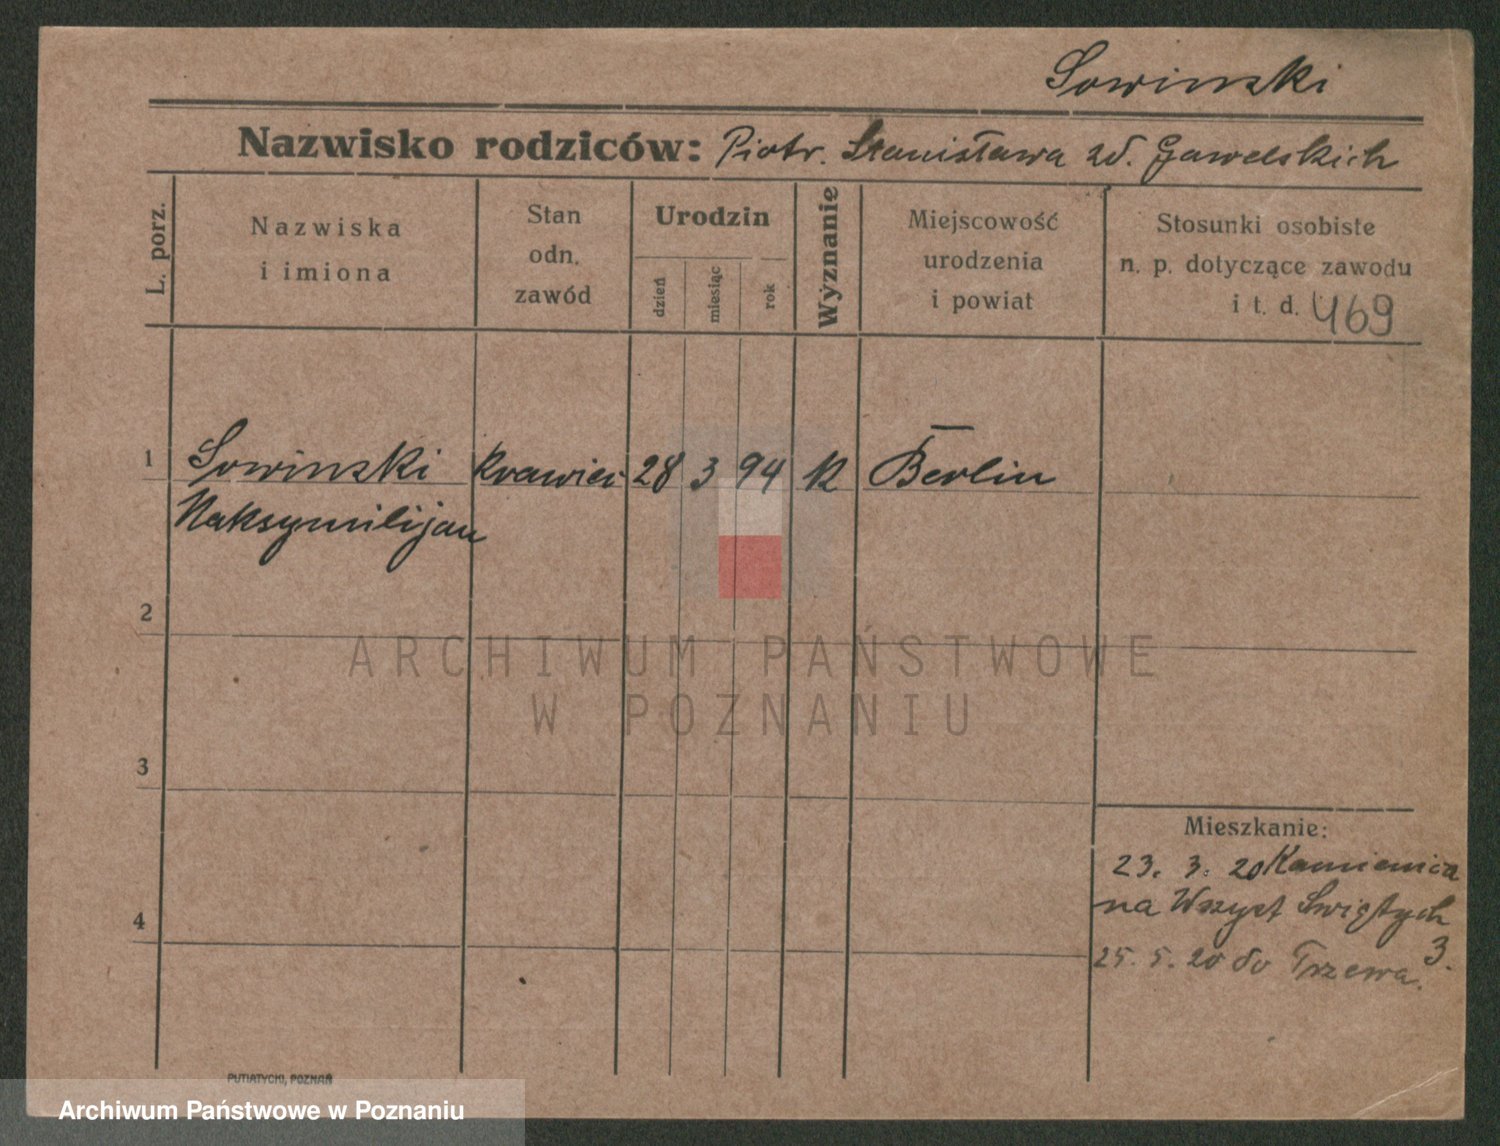 Sowinski
Nazwisko rodziców: Piotr. Stanisława zd. Gawelskich
L. porz.
Nazwiska
i imiona
Stan
odn.
zawód
Urodzin
dzień
miesiąc
rok
Wyznanie
Miejscowość
urodzenia
i powiat
Stosunki osobiste
n. p. dotyczące zawodu
i t. d. 469
1 Sowinski Krawiec 28 3 94 K Berlin
Maksymilijan
2
ARCHIWUM PAŃSTWOWE
W POZNANIU
3
Mieszkanie:
23. 3. 20 Kamienica
na Wszyst Swiętych
3.
4
25. 5. 20 do Trzewa.
PUTIATYCKI, POZNAŃ
Archiwum Państwowe w Poznaniu